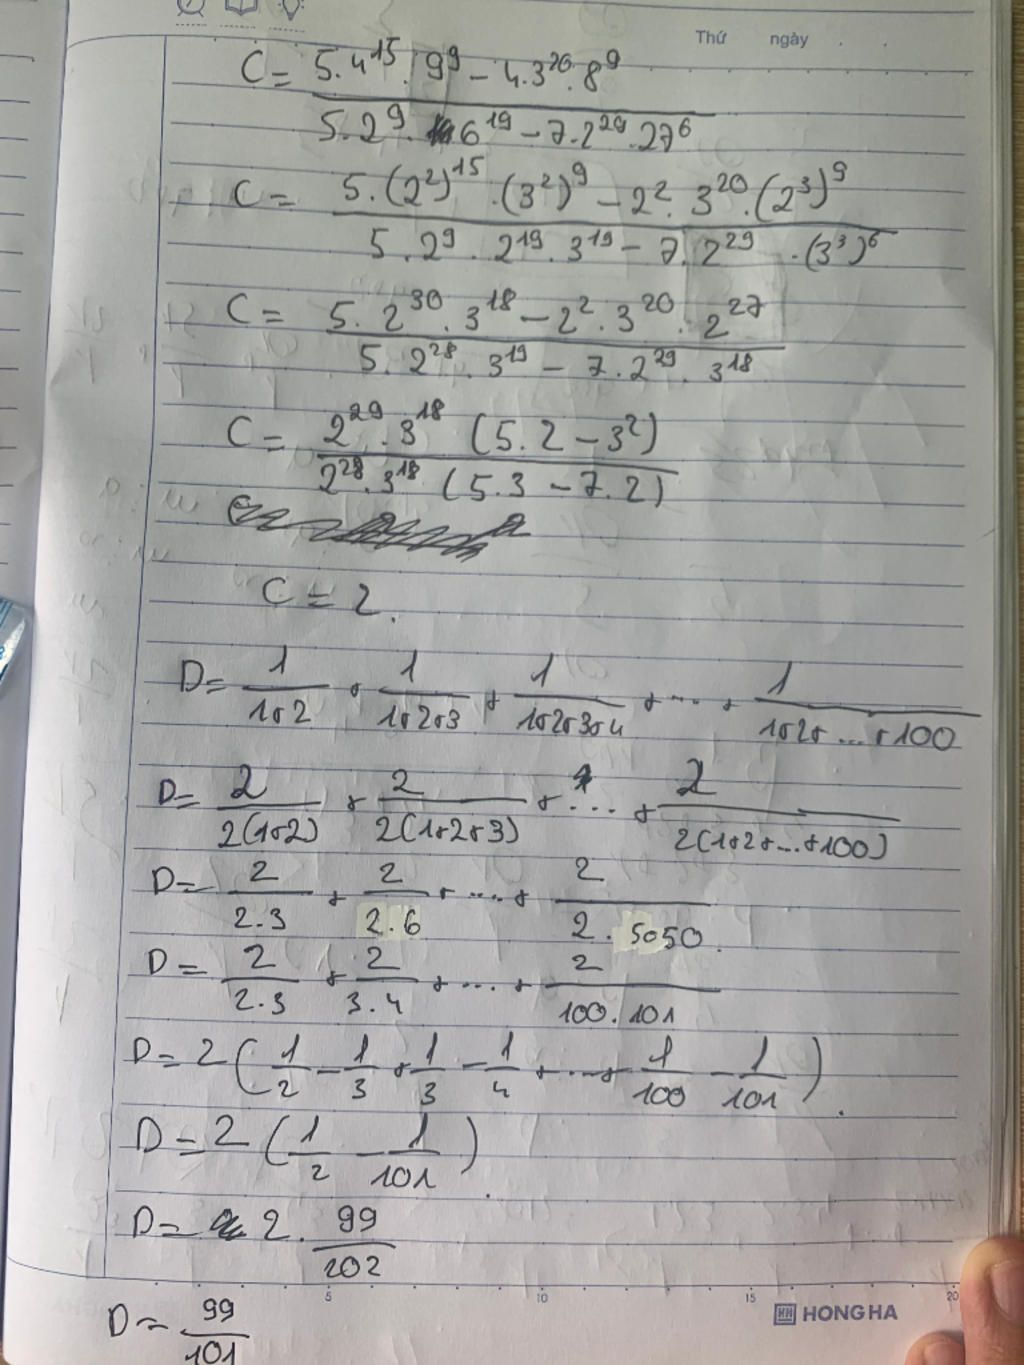 Thứ ngày . .
C = (5.4^15 . 9^9 - 4.3^20 . 8^9) / (5.2^9 . 6^19 - 7.2^29 . 27^6)
C = (5.(2^2)^15 . (3^2)^9 - 2^2 . 3^20 . (2^3)^9) / (5.2^9 . 2^19 . 3^19 - 7.2^29 . (3^3)^6)
C = (5.2^30 . 3^18 - 2^2 . 3^20 . 2^27) / (5.2^28 . 3^19 - 7.2^29 . 3^18)
C = (2^29 . 3^18 (5.2 - 3^2)) / (2^28 . 3^18 (5.3 - 7.2))
C = 2.
D = 1/(1+2) + 1/(1+2+3) + 1/(1+2+3+4) + ... + 1/(1+2+...+100)
D = 2/(2(1+2)) + 2/(2(1+2+3)) + .... + 2/(2(1+2+...+100))
D = 2/(2.3) + 2/(2.6) + .... + 2/(2.5050)
D = 2/(2.3) + 2/(3.4) + .... + 2/(100.101)
D = 2 (1/2 - 1/3 + 1/3 - 1/4 + .... + 1/100 - 1/101).
D = 2 (1/2 - 1/101).
D = 2. 99/202
5 10 15 20
HH HONG HA
D = 99/101